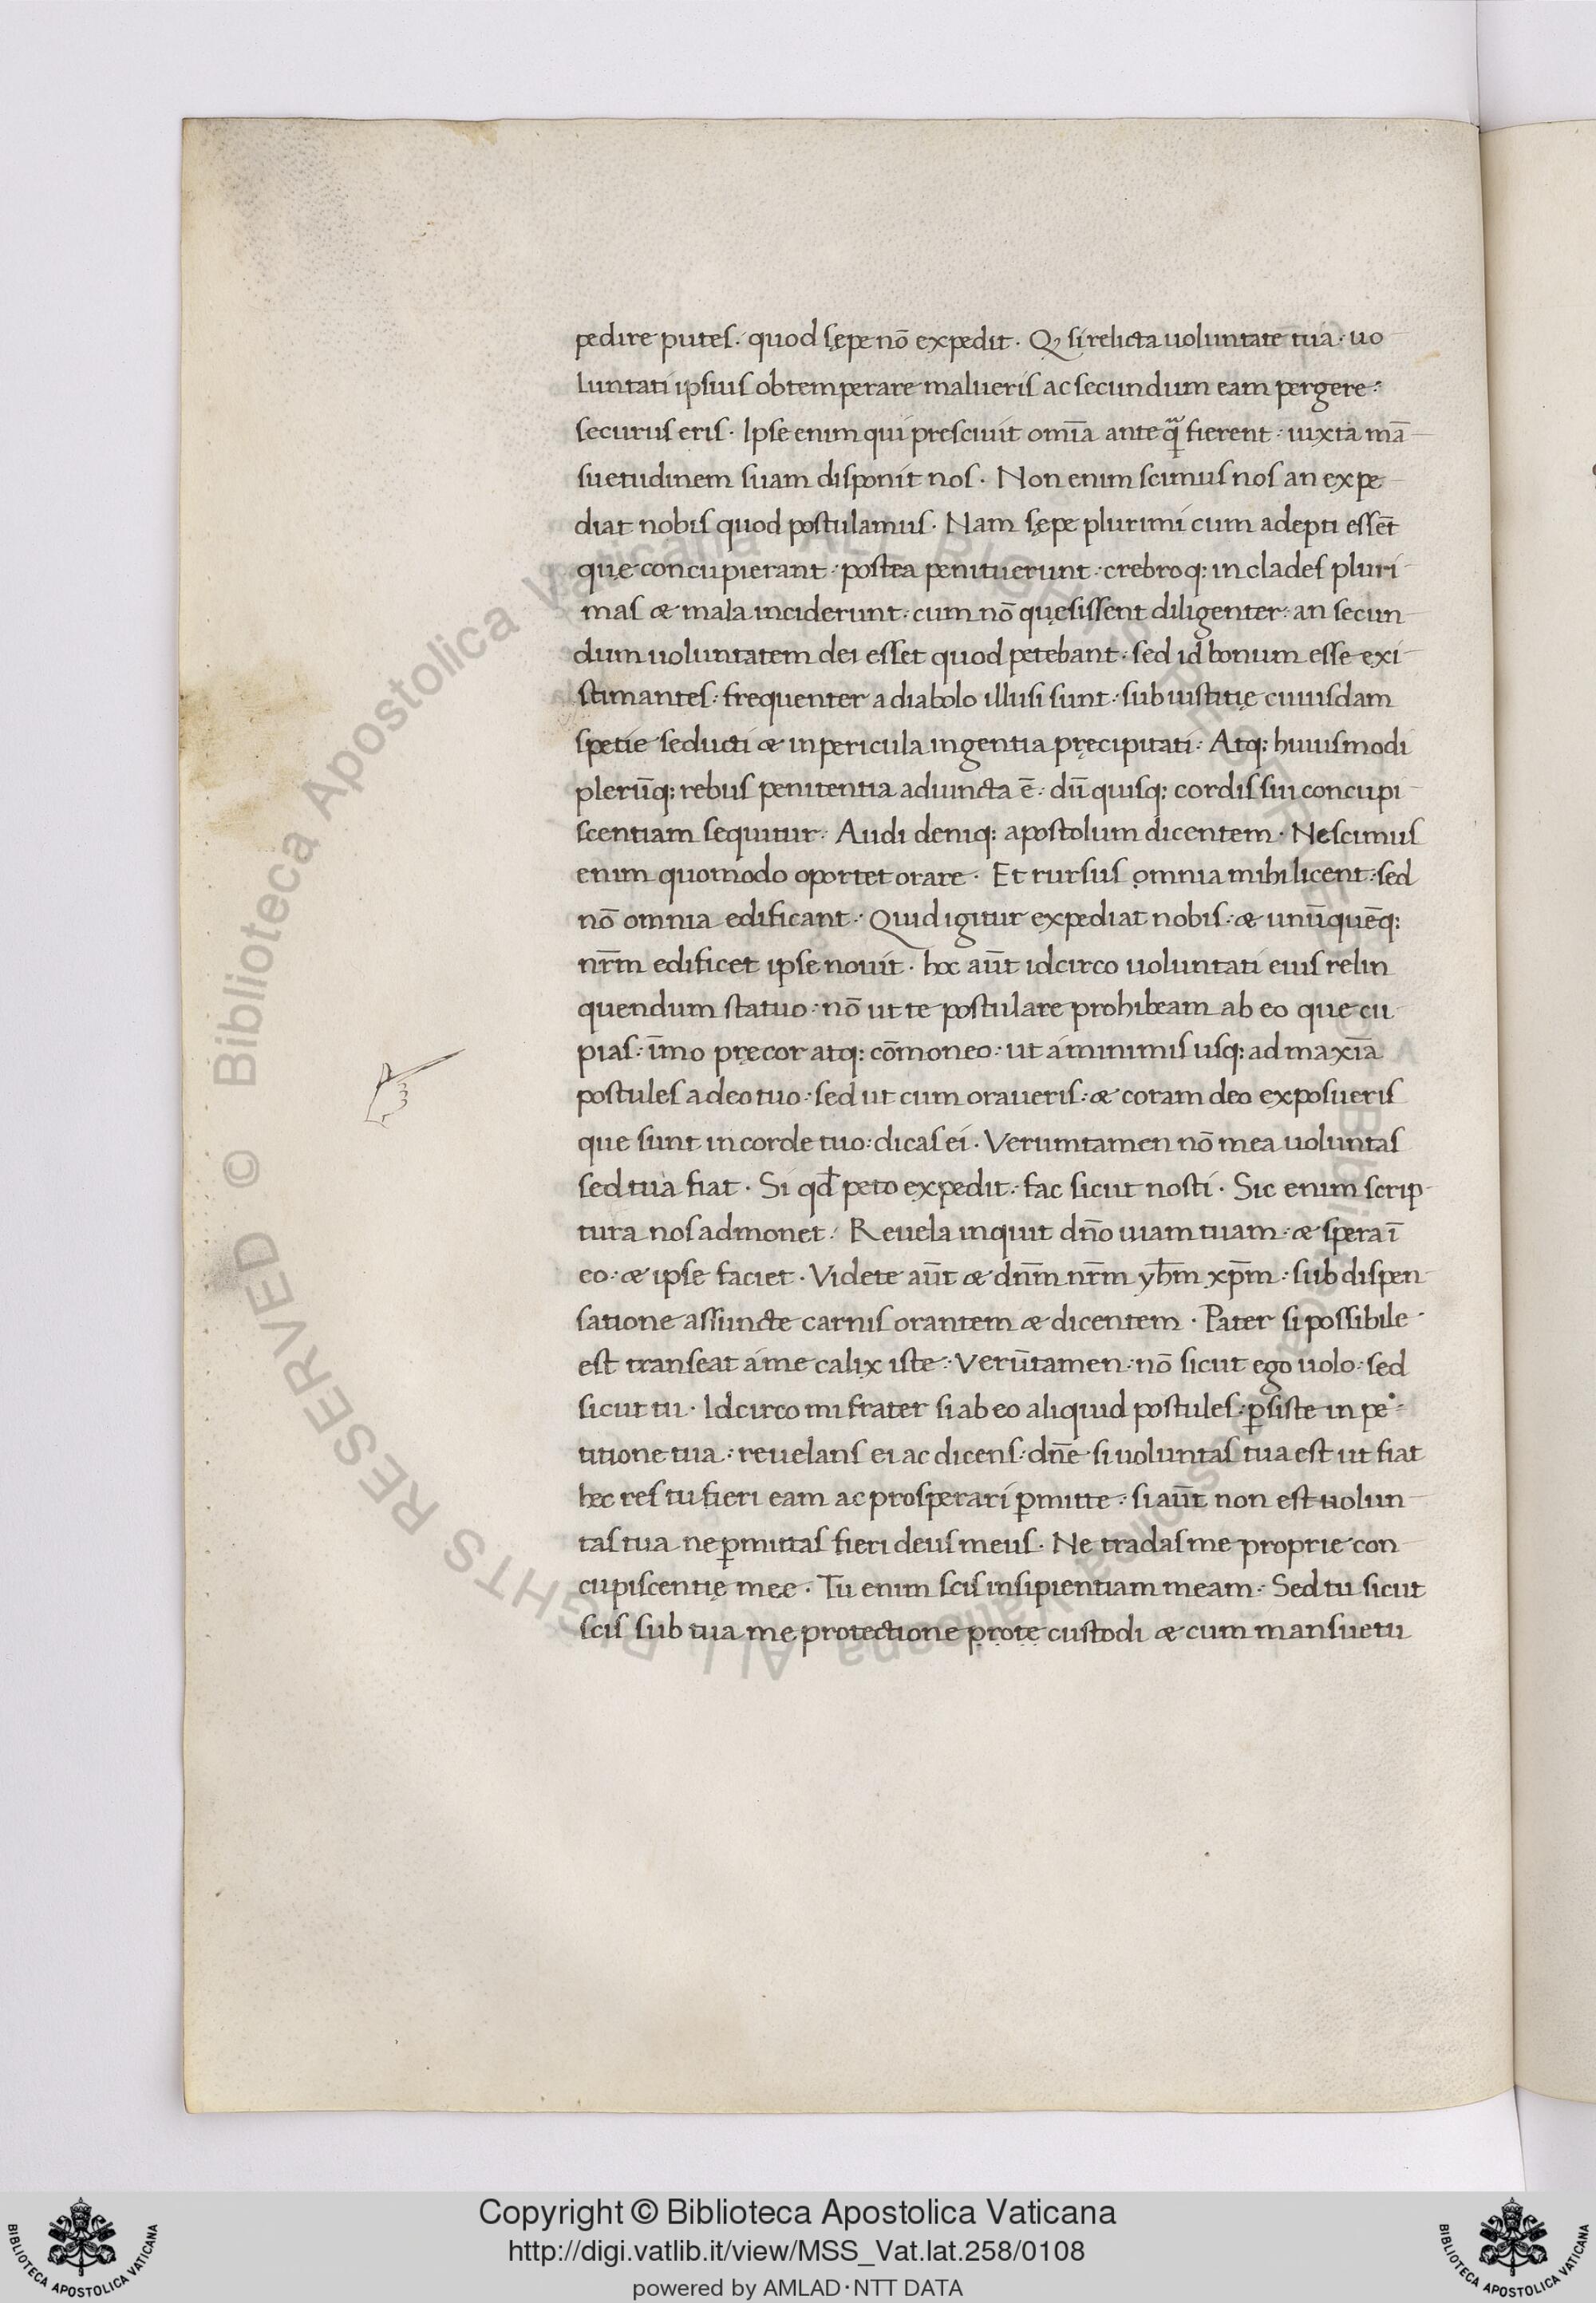 pedire putes. quod sępe nō expedit. Q, si relicta uoluntate tua: uo
luntati ipsius obtemperare malueris ac secundum eam pergere:
securus eris. Ipse enim qui presciuit omīa ante qꝫ̄ fierent: iuxta mā
suetudinem suam disponit nos. Non enim scimus nos an expe
diat nobis quod postulamus. Nam sępe plurimi cum adepti essēt
quę concupierant: postea penituerunt: crebroq: in clades pluri
mas & mala inciderunt: cum nō quęsissent diligenter: an secun
dum uoluntatem dei esset quod petebant: sed id bonum esse exi
stimantes: frequenter a diabolo illusi sunt: sub iustitię cuiusdam
spetie seducti & in pericula ingentia pręcipitati: Atq: huiusmodi
plerūq: rebus penitentia adiuncta ē: dū quisq: cordis sui concupi
scentiam sequitur: Audi deniq: apostolum dicentem. Nescimus
enim quomodo oportet orare. Et rursus omnia mihi licent: sed
nō omnia edificant. Quid igitur expediat nobis: & unūquēq:
nr̄m edificet ipse nouit. hoc aūt idcirco uoluntati eius relin
quendum statuo: nō ut te postulare prohibeam ab eo que cu
pias: īmo pręcor atq: cōmoneo: ut a minimis usq: ad maxīa
postules a deo tuo: sed ut cum oraueris: & coram deo exposueris
que sunt in corde tuo: dicas ei. Verumtamen nō mea uoluntas
sed tua fiat. Si qd̄ peto expedit: fac sicut nosti. Sic enim scrip
tura nos admonet: Reuela inquit dn̄o uiam tuam: & spera ī
eo: & ipse faciet. Videte aūt & dn̄m nr̄m yh̄m xp̄m: sub dispen
satione assuncte carnis orantem & dicentem. Pater si possibile
est transeat a me calix iste: Verūtamen: nō sicut ego uolo: sed
sicut tu. Idcirco mi frater si ab eo aliquid postules: p̱siste in pe
titione tua: reuelans ei ac dicens: dn̄e si uoluntas tua est ut fiat
hęc res tu fieri eam ac prosperari p̱mitte: si aūt non est uolun
tas tua ne p̱mittas fieri deus meus. Ne tradas me proprie con
cupiscentię mee. Tu enim scis insipientiam meam: Sed tu sicut
scis sub tua me protectione prote custodi & cum mansuetu
Copyright © Biblioteca Apostolica Vaticana
http://digi.vatlib.it/view/MSS_Vat.lat.258/0108
powered by AMLAD·NTT DATA
BIBLIOTECA APOSTOLICA VATICANA
BIBLIOTECA APOSTOLICA VATICANA
© Biblioteca Apostolica Vaticana ALL RIGHTS RESERVED © Biblioteca Apostolica Vaticana ALL RIGHTS RESERVED